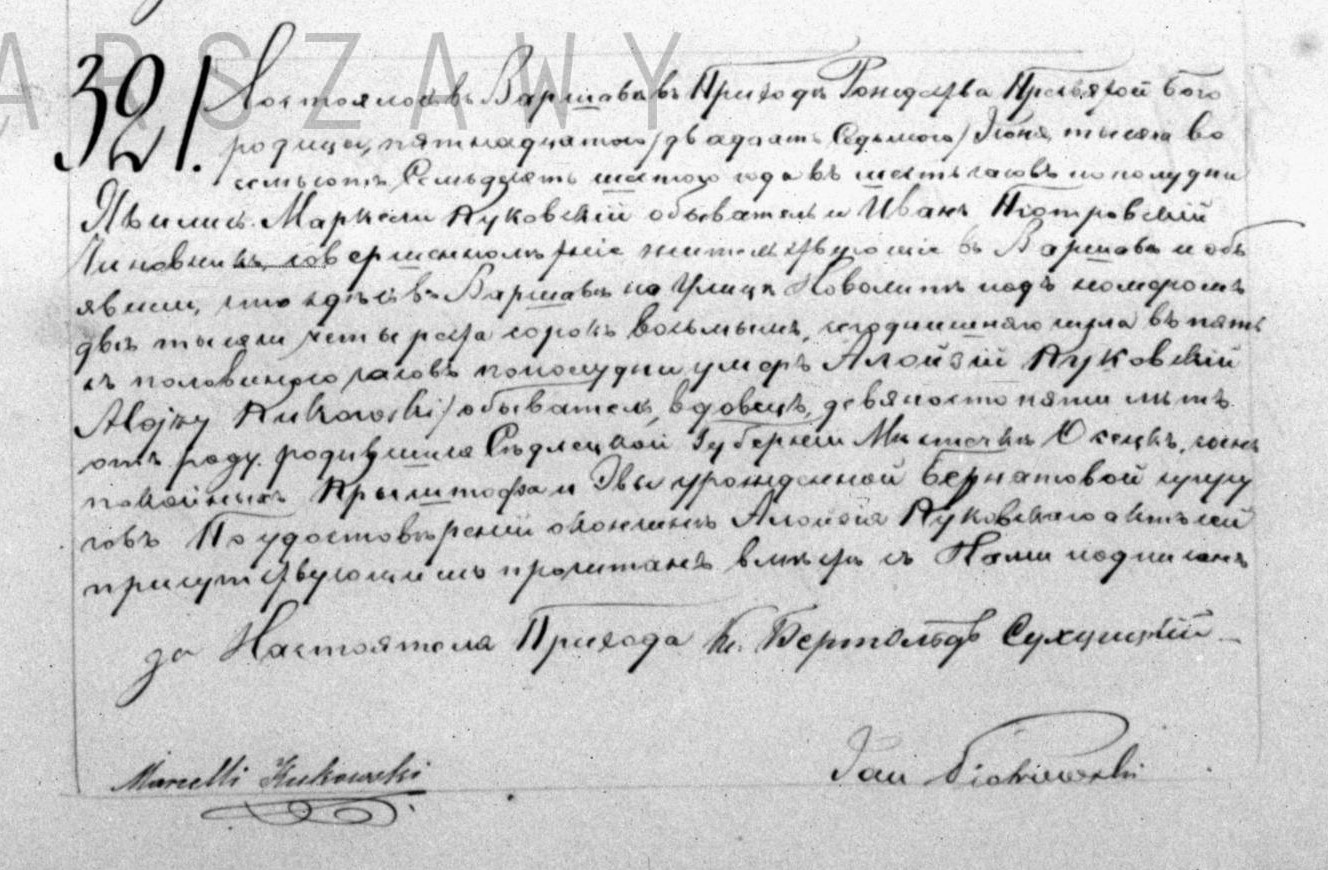 ARSZAWY
321.
Состоялось въ Варшавѣ въ Приходѣ Рождества Пресвятой Бого
родицы, пятнадцатаго /двадцать Седьмаго/ Іюня тысяча во
семьсотъ Семьдесятъ шестого года въ шесть часовъ по полудни
Явились Марцели Куковскій обыватель и Иванъ Піотровскій
Чиновникъ, совершеннолѣтніе жительствующіе въ Варшавѣ и объ
явили, что здѣсь въ Варшавѣ на Улицѣ Новолипѣ подъ номеромъ
двѣ тысячи четыреста сорокъ восьмымъ, сегоднишняго числа въ пять
съ половиною часовъ по полудни умеръ Алойзій Куковскій
Alojzy Kukowski/ обыватель, вдовецъ, девяносто пяти лѣтъ
отъ роду, родившійся Сѣдлецкой Губерніи Мѣстечкѣ сынъ
покойныхъ Крыштофа и Эвы урожденной Бернатовой супру
говъ По удостовѣреніи о кончинѣ Алойзія Куковскаго актъ сей
присутствующимъ прочитанъ вмѣстѣ съ Нами подписанъ
за Настоятеля Прихода Кс. Бертольдъ
Marcelli Kukowski
Jan Piotrowski